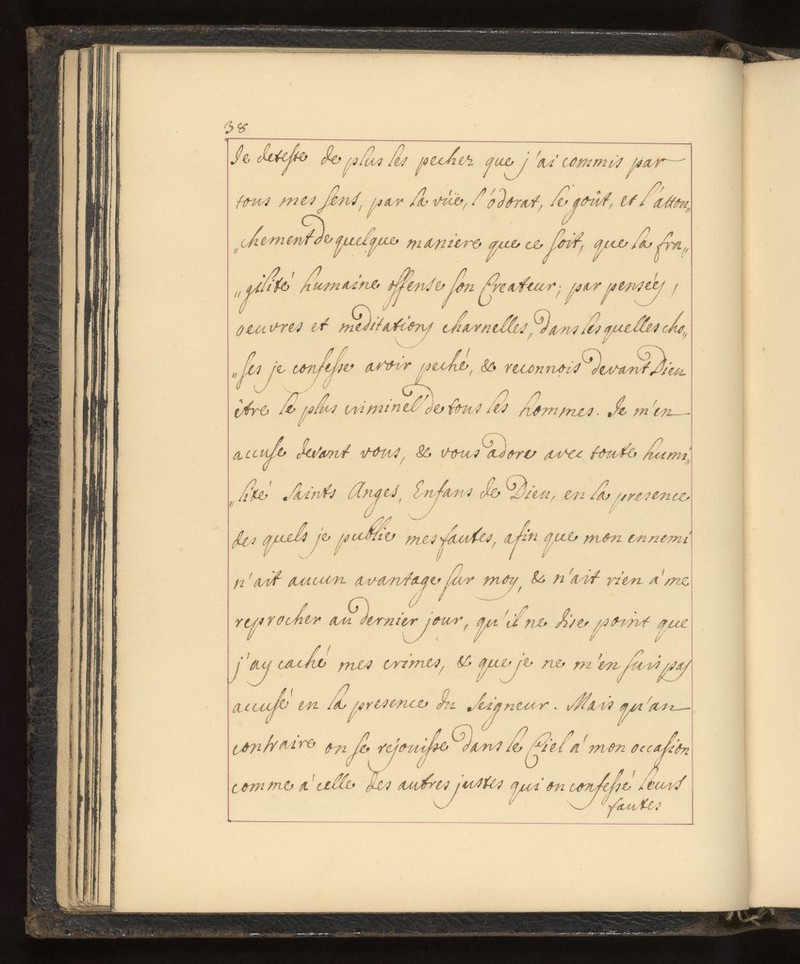 38
Je deteste de plus les pechez que j'ai commis par
tous mes sens, par la vüe, l'ódorat, le goût, et l'attou„
„chement de quelque maniere que ce soit, que la fra„
„gilité humaine offense son Createur; par penséés,
oeuvres et méditations charnelles, dans lesquelles cho„
„ses je confesse avoir peché, & reconnois devant Dieu
être le plus criminel de tous les hommes. Je m'en
accuse devant vous, & vous adore avec toute humi„
„lité Saints Anges, Enfans de Dieu, en la presence
des quels je publie mes fautes, afin que mon ennemi
n'ait aucun avantage sur moy, & n'ait rien á me
reprocher au dernier jour, qu'il ne dise point que
j'ay caché mes crimes, & que je ne m'en suis pas
accusé en la presence du Seigneur. Mais qu'au
contraire on se réjouisse dans le Ciel á mon occasion
comme á celle des autres justes qui on confessé leurs
fautes